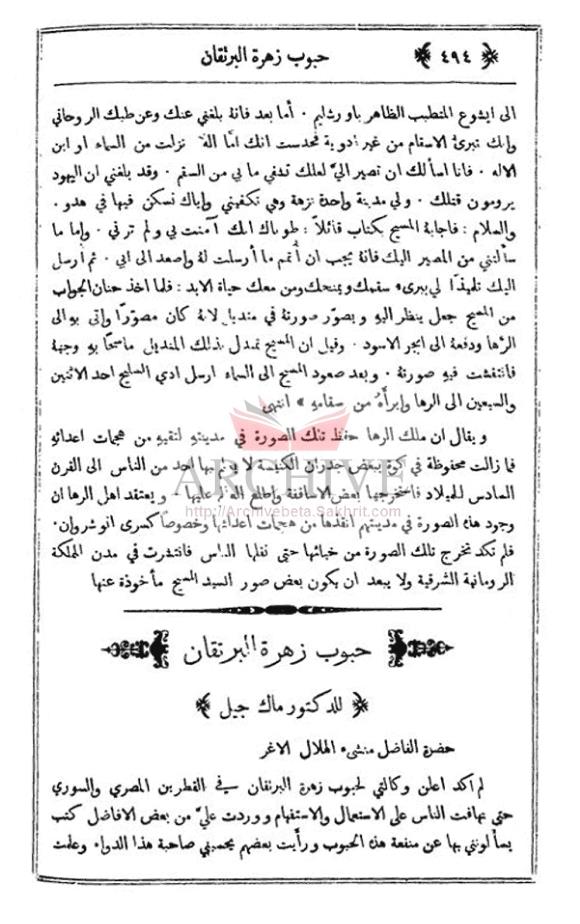 ﴿ ٤٩٤ ﴾ حبوب زهرة البرتقان
الى ايشوع المتطبب الظاهر باورشليم . أما بعد فانهُ بلغني عنك وعن طبك الروحاني
وانك تبرئ الاسقام من غير ادوية فحدست انك امّا اله نزلت من السماء او ابن
الاله . فانا اسألك ان تصير اليّ لعلك تشفي ما بي من السقم . وقد بلغني ان اليهود
يرومون قتلك . ولي مدينة واحدة نزهة وهي تكفيني واياك نسكن فيها في هدو .
والسلام : فاجابهُ المسيح بكتاب قائلاً : طوباك انك آمنت بي ولم ترني . واما ما
سألتني من المصير اليك فانهُ يجب ان أتمم ما أرسلت لهُ واصعد الى ابي . ثم أرسل
اليك تلميذًا لي يبرىء سقمك ويمنحك ومن معك حياة الابد : فلما اخذ حنان الجواب
من المسيح جعل ينظر اليهِ ويصوّر صورتهُ في منديل لانهُ كان مصوّرًا واتى بهِ الى
الرها ودفعهُ الى ابجر الاسود . وقيل ان المسيح تمندل بذلك المنديل ماسحًا بهِ وجههُ
فانتقشت فيهِ صورتهُ . وبعد صعود المسيح الى السماء ارسل ادي السليح احد الاثنين
والسبعين الى الرها وابرأَهُ من سقامهِ » انتهى
ARCHIVE
و يقال ان ملك الرها حفظ تلك الصورة في مدينتهِ لتقيهِ من هجمات اعدائهِ
فما زالت محفوظة في كوة ببعض جدران الكنيسة لا يعلم بها احد من الناس الى القرن
السادس للميلاد فاستخرجها بعض الاساقفة واطلع العالم عليها . ويعتقد اهل الرها ان
http://Archivebeta.Sakhrit.com
وجود هذه الصورة في مدينتهم انقذها من هجمات اعدائها وخصوصًا كسرى انوشروان .
فلم تكد تخرج تلك الصورة من خبائها حتى نقلها الناس فانتشرت في مدن المملكة
الرومانية الشرقية ولا يبعد ان يكون بعض صور السيد المسيح مأخوذة عنها
حبوب زهرة البرتقان
﴿ للدكتور ماك جيل ﴾
حضرة الفاضل منشىء الهلال الاغر
لم اكد اعلن وكالتي لحبوب زهرة البرتقان في القطرين المصري والسوري
حتى تهافت الناس على الاستعمال والاستفهام ووردت عليّ من بعض الافاضل كتب
يسألونني بها عن منفعة هذه الحبوب ورأيت بعضهم يحسبني صاحبة هذا الدواء وعلمت